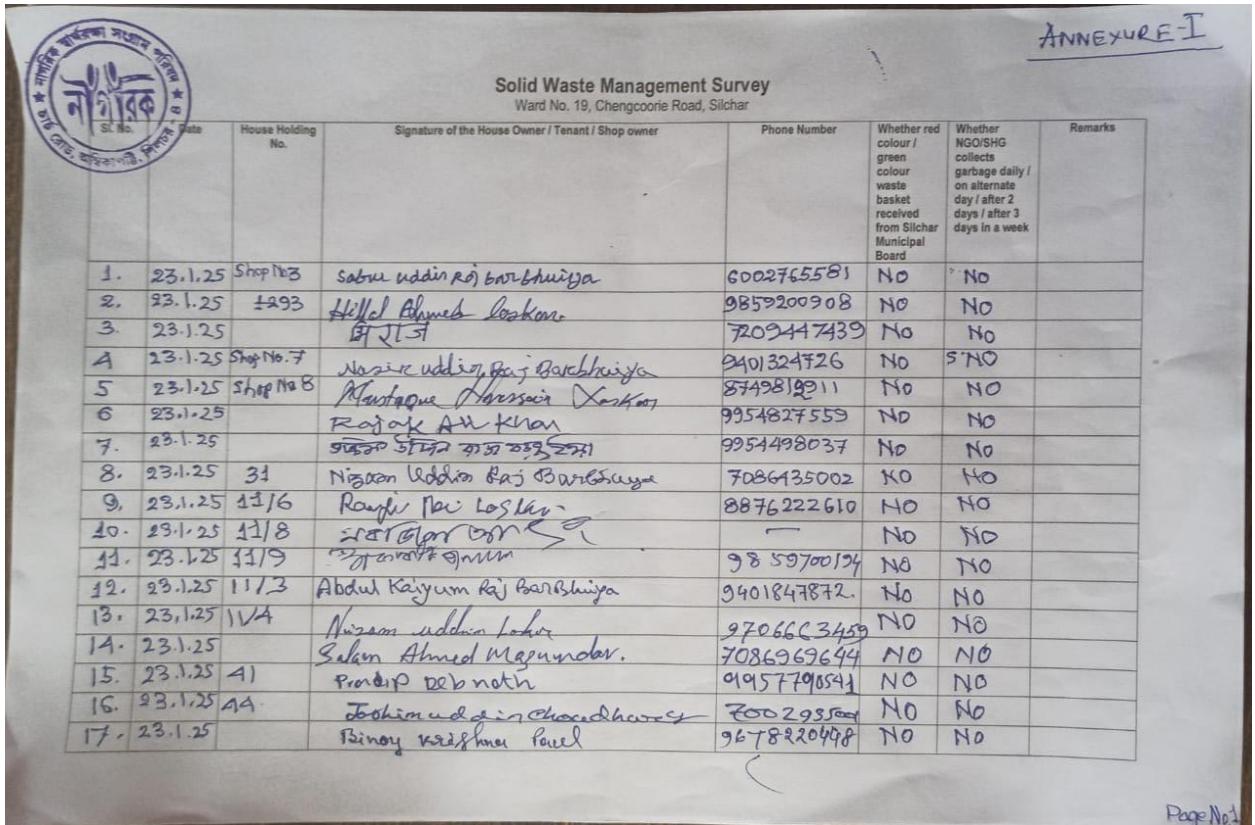 ANNEXURE-I
নাগরিক স্বার্থরক্ষা সংগ্রাম পরিষদ
নাগরিক
চার্চ রোড, অম্বিকাপট্টি, শিলচর - ৪
Solid Waste Management Survey
Ward No. 19, Chengcoorie Road, Silchar
Sl. No. Date House Holding No. Signature of the House Owner / Tenant / Shop owner Phone Number Whether red colour / green colour waste basket received from Silchar Municipal Board Whether NGO/SHG collects garbage daily / on alternate day / after 2 days / after 3 days in a week Remarks
1. 23.1.25 Shop No3 Sabur uddin Raj barbhuiya 6002765581 NO NO
2. 23.1.25 1293 Hillol Ahmed Laskar 9859200908 NO NO
3. 23.1.25 7209447439 No No
4 23.1.25 Shop No.7 Nasir uddin Raj Barbhuiya 9401324726 NO NO
5 23.1.25 Shop No 8 Mustaque Hussain Laskar 8749819911 No NO
6 23.1.25 Rajak Ali Khan 9954827559 NO NO
7. 23.1.25 উদ্দিন রাজ বড়ভুইয়া 9954498037 No No
8. 23.1.25 31 Nizam Uddin Raj Barbhuiya 7086435002 NO NO
9. 23.1.25 11/6 Laskar 8876222610 NO NO
10. 23.1.25 11/8 — No No
11. 23.1.25 11/9 9859700194 NO NO
12. 23.1.25 11/3 Abdul Kaiyum Raj BarBhuiya 9401847872. No NO
13. 23.1.25 11/4 Nizam uddin 9706663459 NO NO
14. 23.1.25 Salam Ahmed Mazumdar. 7086969644 NO NO
15. 23.1.25 41 Pradip Debnath 9957790541 NO NO
16. 23.1.25 44 Johimuddin Choudhury NO No
17. 23.1.25 Binoy Krishna Paul 9678220448 NO NO
Page No 1